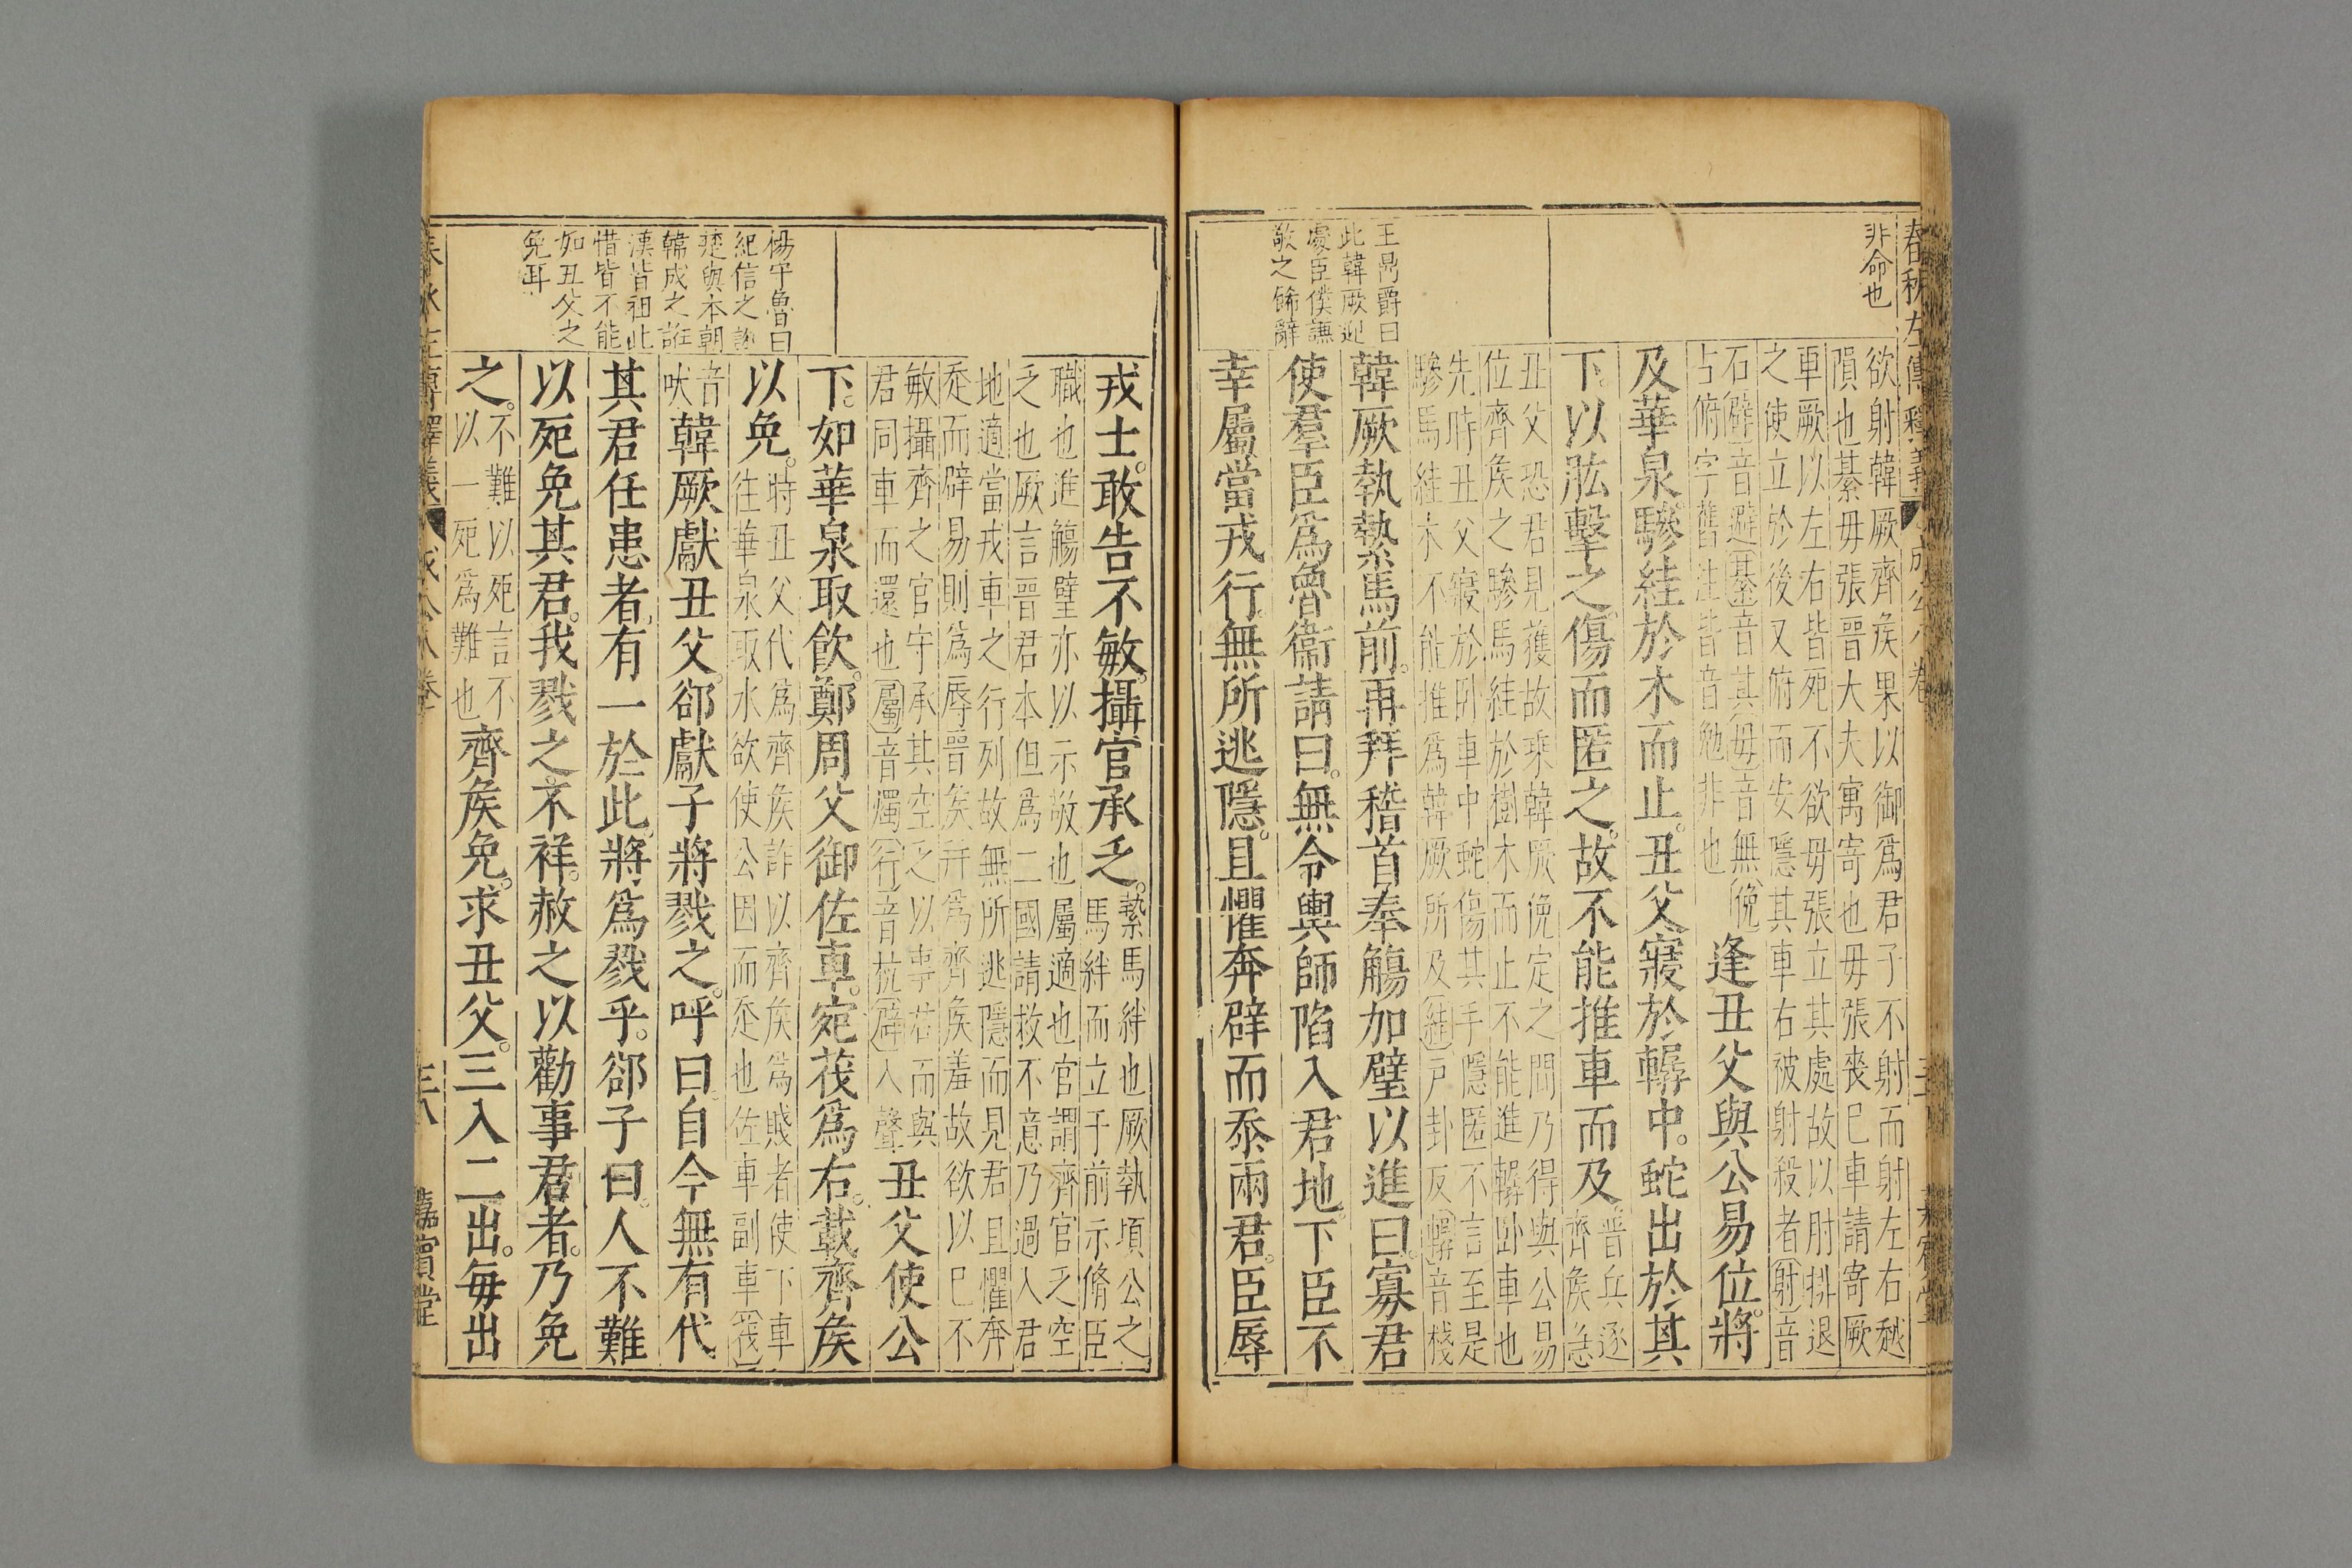 非命也
欲射韓厥齊矦果以御爲君子不射而射左右越
隕也綦毋張晉大夫寓寄也毋張喪巳車請寄厥
車厥以左右皆死不欲毋張立其處故以肘排退
之使立於後又俯而安隱其車右被射殺者射音
石辟音避綦音其毋音無俛
占俯字舊注皆音勉非也
逢丑父與公易位將
及華泉驂絓於木而止丑父寢於轏中蛇出於其
下以肱擊之傷而匿之故不能推車而及
晉兵逐
齊矦急
丑父恐君見獲故乘韓厥俛定之間乃得與公易
位齊矦之驂馬絓於樹木而止不能進轏卧車也
先時丑父寢於卧車中蛇傷其手隱匿不言至是
驂馬絓木不能推爲韓厥所及絓戸卦反轏音棧
王鳳爵曰
此韓厥迎
處臣僕謙
敬之餙辭
韓厥執縶馬前再拜稽首奉觴加璧以進曰寡君
使羣臣爲魯衞請曰無令輿師陷入君地下臣不
幸屬當戎行無所逃隱且懼奔辟而忝兩君臣辱
戎士敢告不敏攝官承乏
縶馬絆也厥執頃公之
馬絆而立于前示脩臣
職也進觴璧亦以示敬也屬適也官謂齊官乏空
乏也厥言晉君本但爲二國請救不意乃過入君
地適當戎車之行列故無所逃隱而見君且懼奔
忝而辟易則爲辱晉矦幷爲齊矦羞故欲以巳不
敏攝齊之官守承其空乏以事君而與
君同車而還也屬音燭行音杭辟入聲
丑父使公
下如華泉取飲鄭周父御佐車宛茷爲右載齊矦
以免
時丑父代爲齊矦詐以齊矦爲賤者使下車
往華泉取水欲使公因而忝也佐車副車茷
音
吠
韓厥獻丑父郤獻子將戮之呼曰自今無有代
楊宇魯曰
紀信之誑
楚與本朝
韓成之誑
漢皆祖此
惜皆不能
如丑父之
免耳
其君任患者有一於此將爲戮乎郤子曰人不難
以死免其君我戮之不祥赦之以勸事君者乃免
之
不難以死言不
以一死爲難也
齊矦免求丑父三入二出每出
嘉賓堂